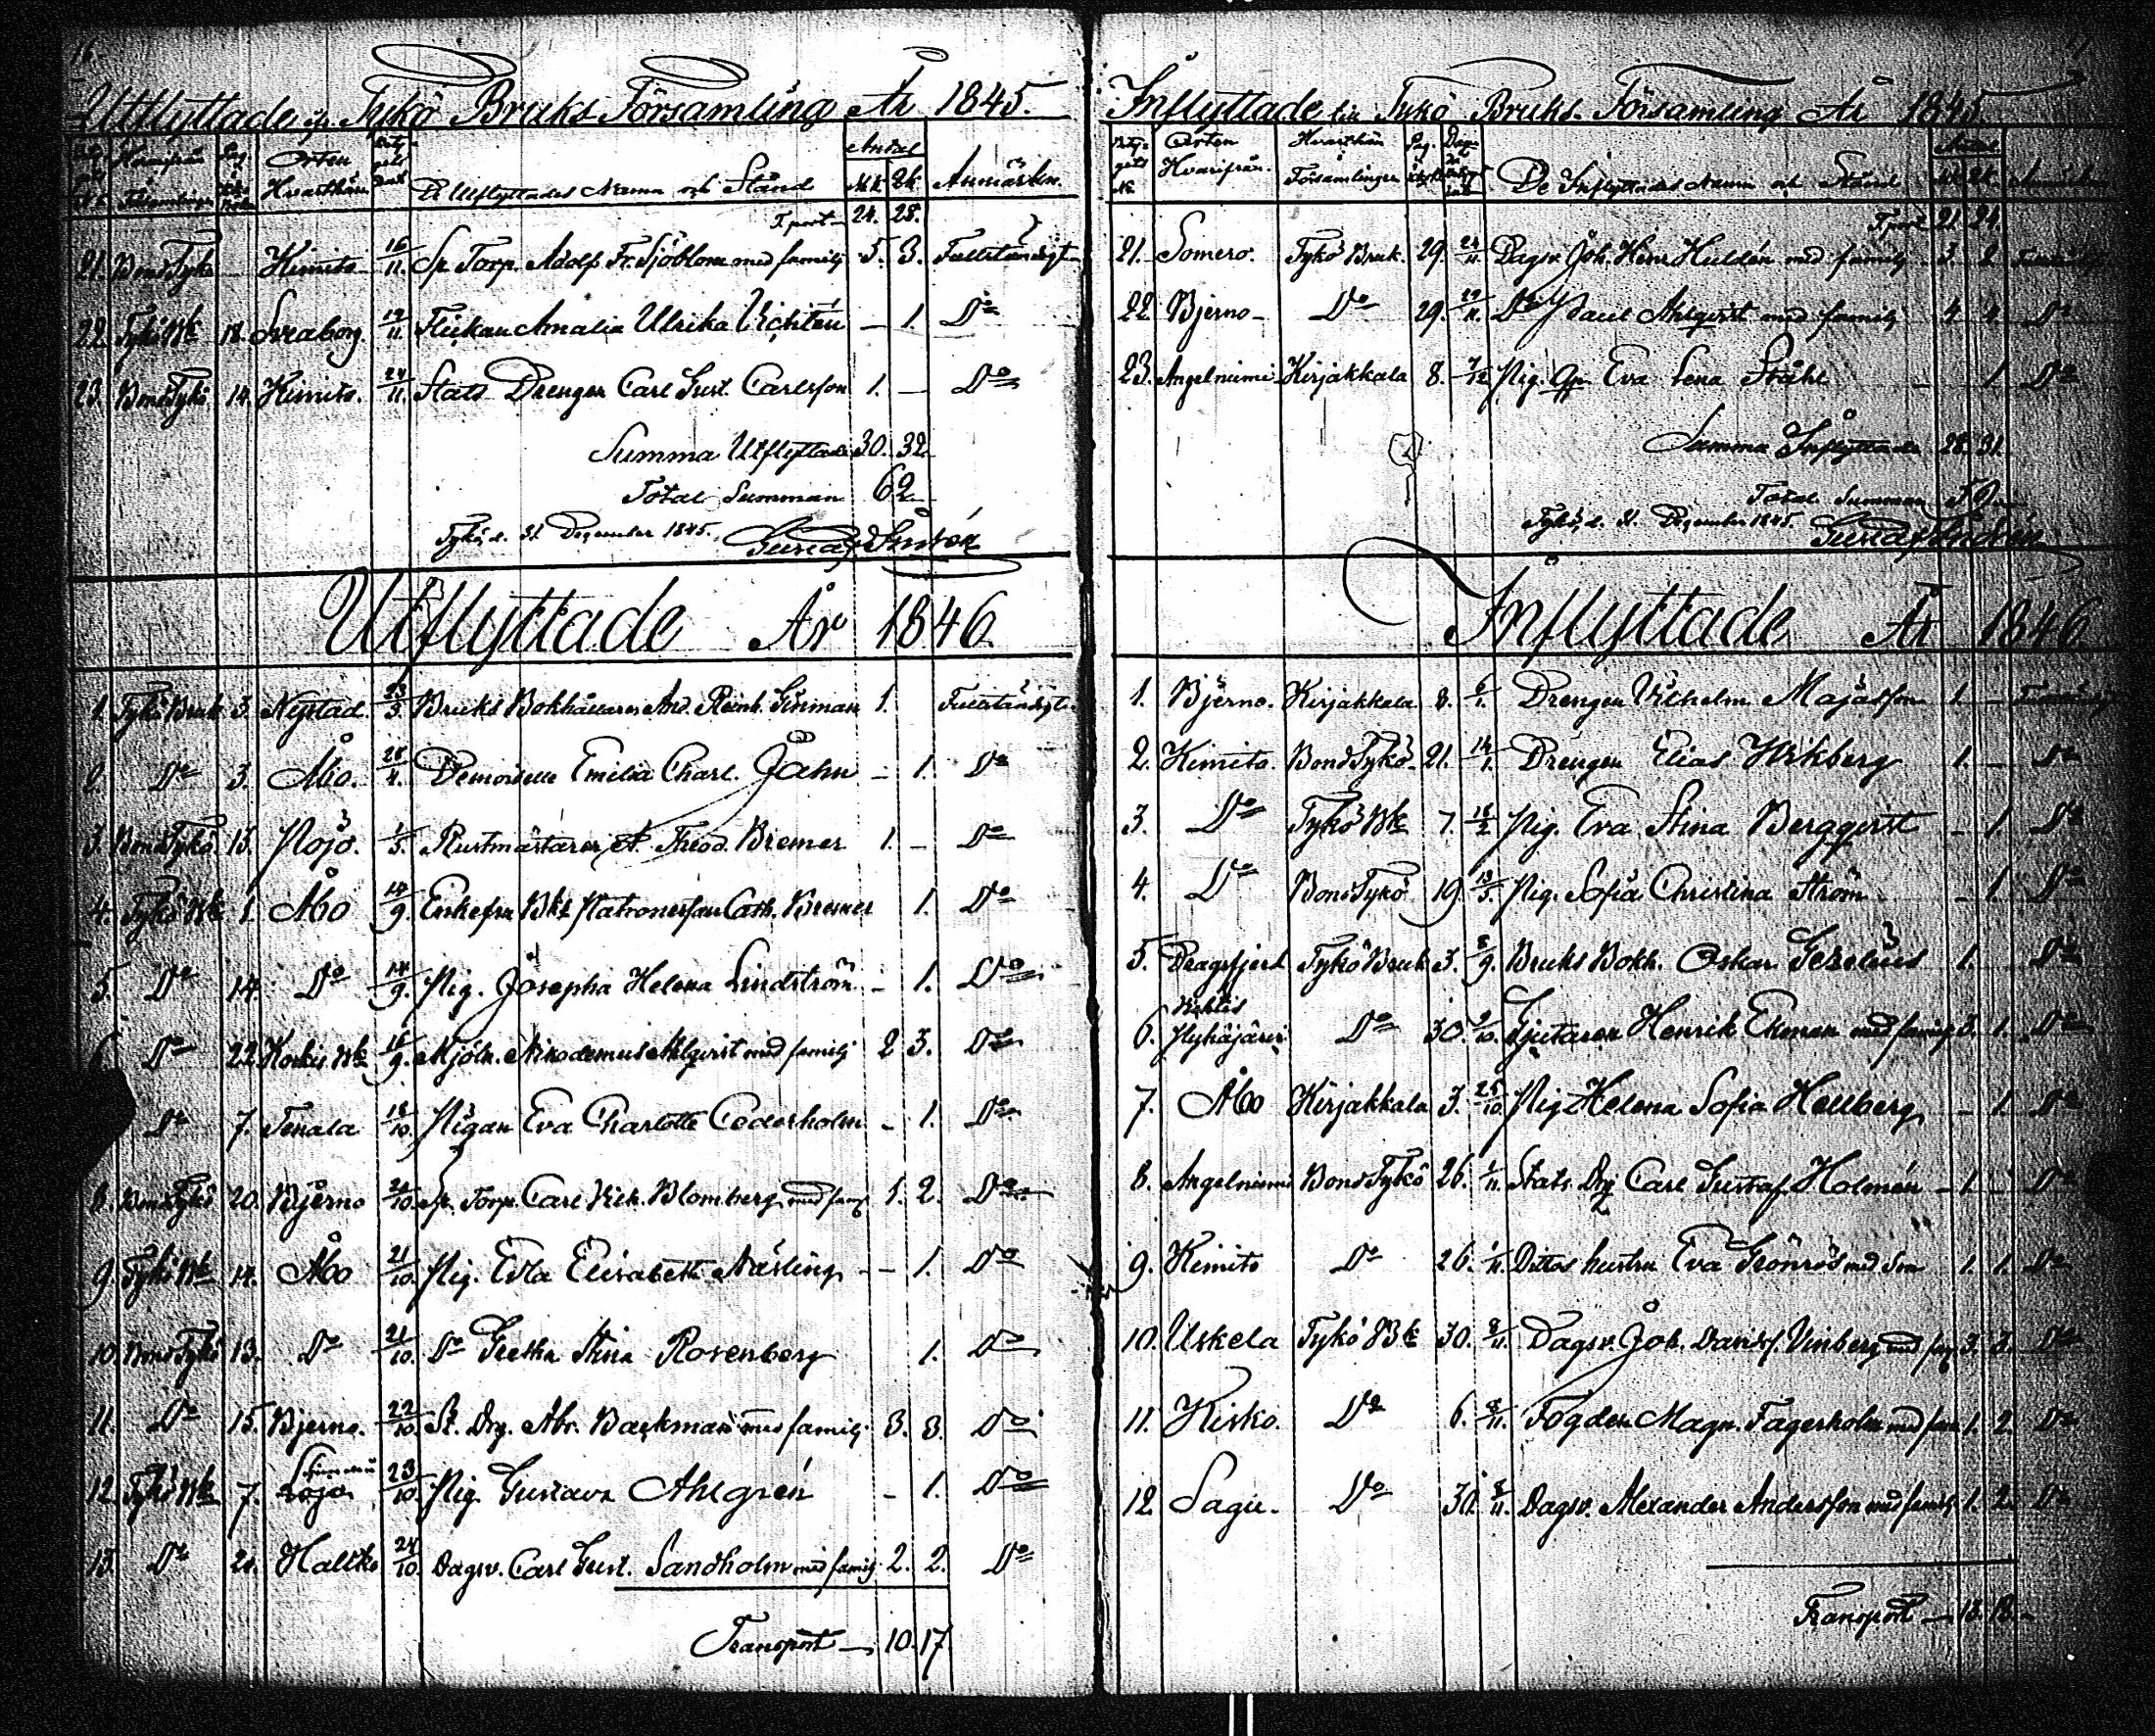 16
Utflyttade ifr. Tykö Bruks Församling År 1845.
Hvarifrån Församlingen Orten Hvarthän De Utflyttades Namn och Stånd Antal Mk. Qk. Anmärkn.
F. port 24. 28.
21. Bond Tykö – Kimito 16/11. Sp. Torp. Adolf Fr. Sjöblom med familj 5. 3. Fullständigt
22. Tykö Bk 18. Sveaborg. 19/11. Flickan Amalia Ulrika Vichtén – 1. Do
23. Bond Tykö 14. Kimito. 24/11. Stats Drengen Carl Gust. Carlsson 1. – Do
Summa Utflyttade 30. 32.
Total Summan 62.
Tykö, d. 31 December 1845. Gustaf
Utflyttade År 1846.
1. Tykö Bruk 3. Nystad. 23/3. Bruks Bokhållaren And. Reinh. 1. Fullständigt
2. Do 3. Åbo. 28/4. Demoiselle Emilia Charl. Jahn – 1. Do
3. Bond Tykö. 13. Pojo. 1/5. Rustmästaren A. Theod. Bremer 1. – Do
4. Tykö Bk 1. Åbo 14/9. Enkefru Bks Patronessan Cath. Bremer 1. Do
5. Do 14. Do 14/9. Pig. Josepha Helena Lindström – 1. Do
6. Do 22. Koskis Bk 16/9. Mjöln. Nikodemus Ahlqvist med familj 2 3. Do
Do 7. Tenala 18/10. Pigan Eva Charlotte Cederholm – 1. Do
8. Bond Tykö 20. Bjerno 20/10. Sp. Torp. Carl Vilh. Blomberg med famj 1. 2. Do
9. Tykö Bk 14. Åbo 21/10. Pig. Eva Elisabeth Närling – – 1. Do
10. Bond Tykö 13. Do 21/10. Do Gretha Stina Rosenberg 1. Do
11. Do 15. Bjerno. 22/10. St. Drg. Abr. Backman med familj 3. 3. Do
12. Tykö Bk 7. 23/10. Pig. Gustava Ahlgrén – 1. Do
13. Do 21. Halikko 24/10. Dagsv. Carl Gust. Sandholm med familj. 2. 2. Do
Transport – 10. 17
Inflyttade till Tykö Bruks Församling År 1845
Orten Hvarifrån. Hvarthän Församlingen Pag. De Inflyttades Namn och Stånd Antal
F. port 21. 24.
21. Somero. Tykö Bruk. 29. 24/11. Dagsv. Joh. Henr. Huldén med familj 3. 2
22. Bjerno – Do 29. 29/11. Do Paul Ahlqvist med familj 4 4. Do
23. Angelniemi Kirjakkala 8. 7/12. Pig. Eva Lena Ståhl – 1 Do
Summa Inflyttade 28. 31.
Total Summan 59.
Tykö, d. 31. December 1845. Gustaf
Inflyttade År 1846
1. Bjerno. Kirjakkala 8. 6/1. Drengen Vilhelm Majasson 1. –
2. Kimito. Bond Tykö. 21. 14/1. Drengen Elias Wikberg 1. – Do
3. Do Tykö Bk 7. 18/2 Pig. Eva Stina Bergqvist – 1 Do
4. Do Bond Tykö 19. 13/3. Pig. Sofia Christina Ström – 1. Do
5. Dragsfjerd Tykö Bruk 3. 8/9. Bruks Bokh. Oskar Gezelius 1. Do
6. Vichtis Hyhäjärvi Do 30. 9/10. Gjutaren Henrik Ekman med familj 3. 1. Do
7. Åbo Kirjakkala 3. 25/10. Pig. Helena Sofia Hellberg – 1. Do
8. Angelniemi Bond Tykö 26. 1/11. Stats. Drg Carl Gustaf Holmén – 1. – Do
9. Kimito Do 26. 1/11. Dittos hustru Eva Grönros med Son 1. 1. Do
10. Uskela Tykö Bk 30. 8/11. Dagsv. Joh. Davidsf. Vinberg med famj 3. 3. Do
11. Kisko. Do 6. 8/11. Fogden Magn. Fagerholm med fam 1. 2. Do
12. Sagu. Do 30. 8/11. Dagsv. Alexander Andersson med familj 1. 2. Do
Transport – 13. 12. –